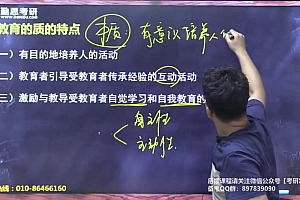 勤思考研
教育的质的特点
本质：有意识培养人的
一）有目的地培养人的活动
二）教育者引导受教育者传承经验的互动活动
三）激励与教导受教育者自觉学习和自我教育的
自主性
主动性
010-86466160
QQ群：897839090